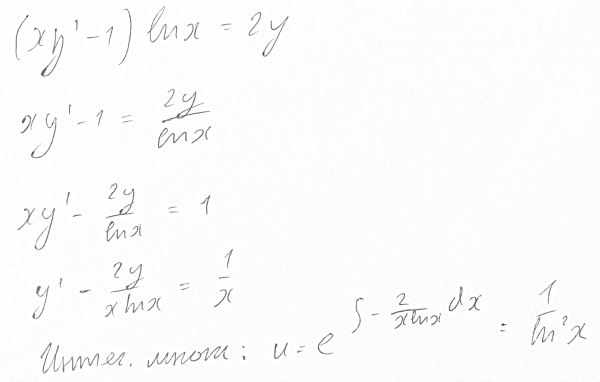 (xy' - 1) ln x = 2y
xy' - 1 = 2y / ln x
xy' - 2y / ln x = 1
y' - 2y / (x ln x) = 1 / x
Интег. множ: u = e^(∫ - 2 / (x ln x) dx) = 1 / ln² x